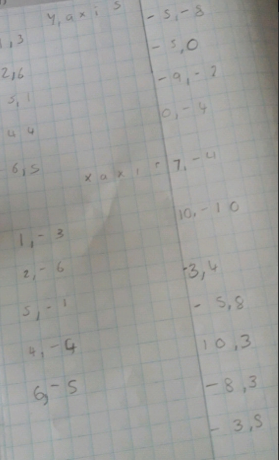 y, axis
1, 3
2, 6
5, 1
4 4
6, 5
x axis
1, -3
2, -6
5, -1
4, -4
6, -5
-5, -8
-5, 0
-9, -2
0, -4
7, -4
10, -10
-3, 4
-5, 8
10, 3
-8, 3
-3, 5